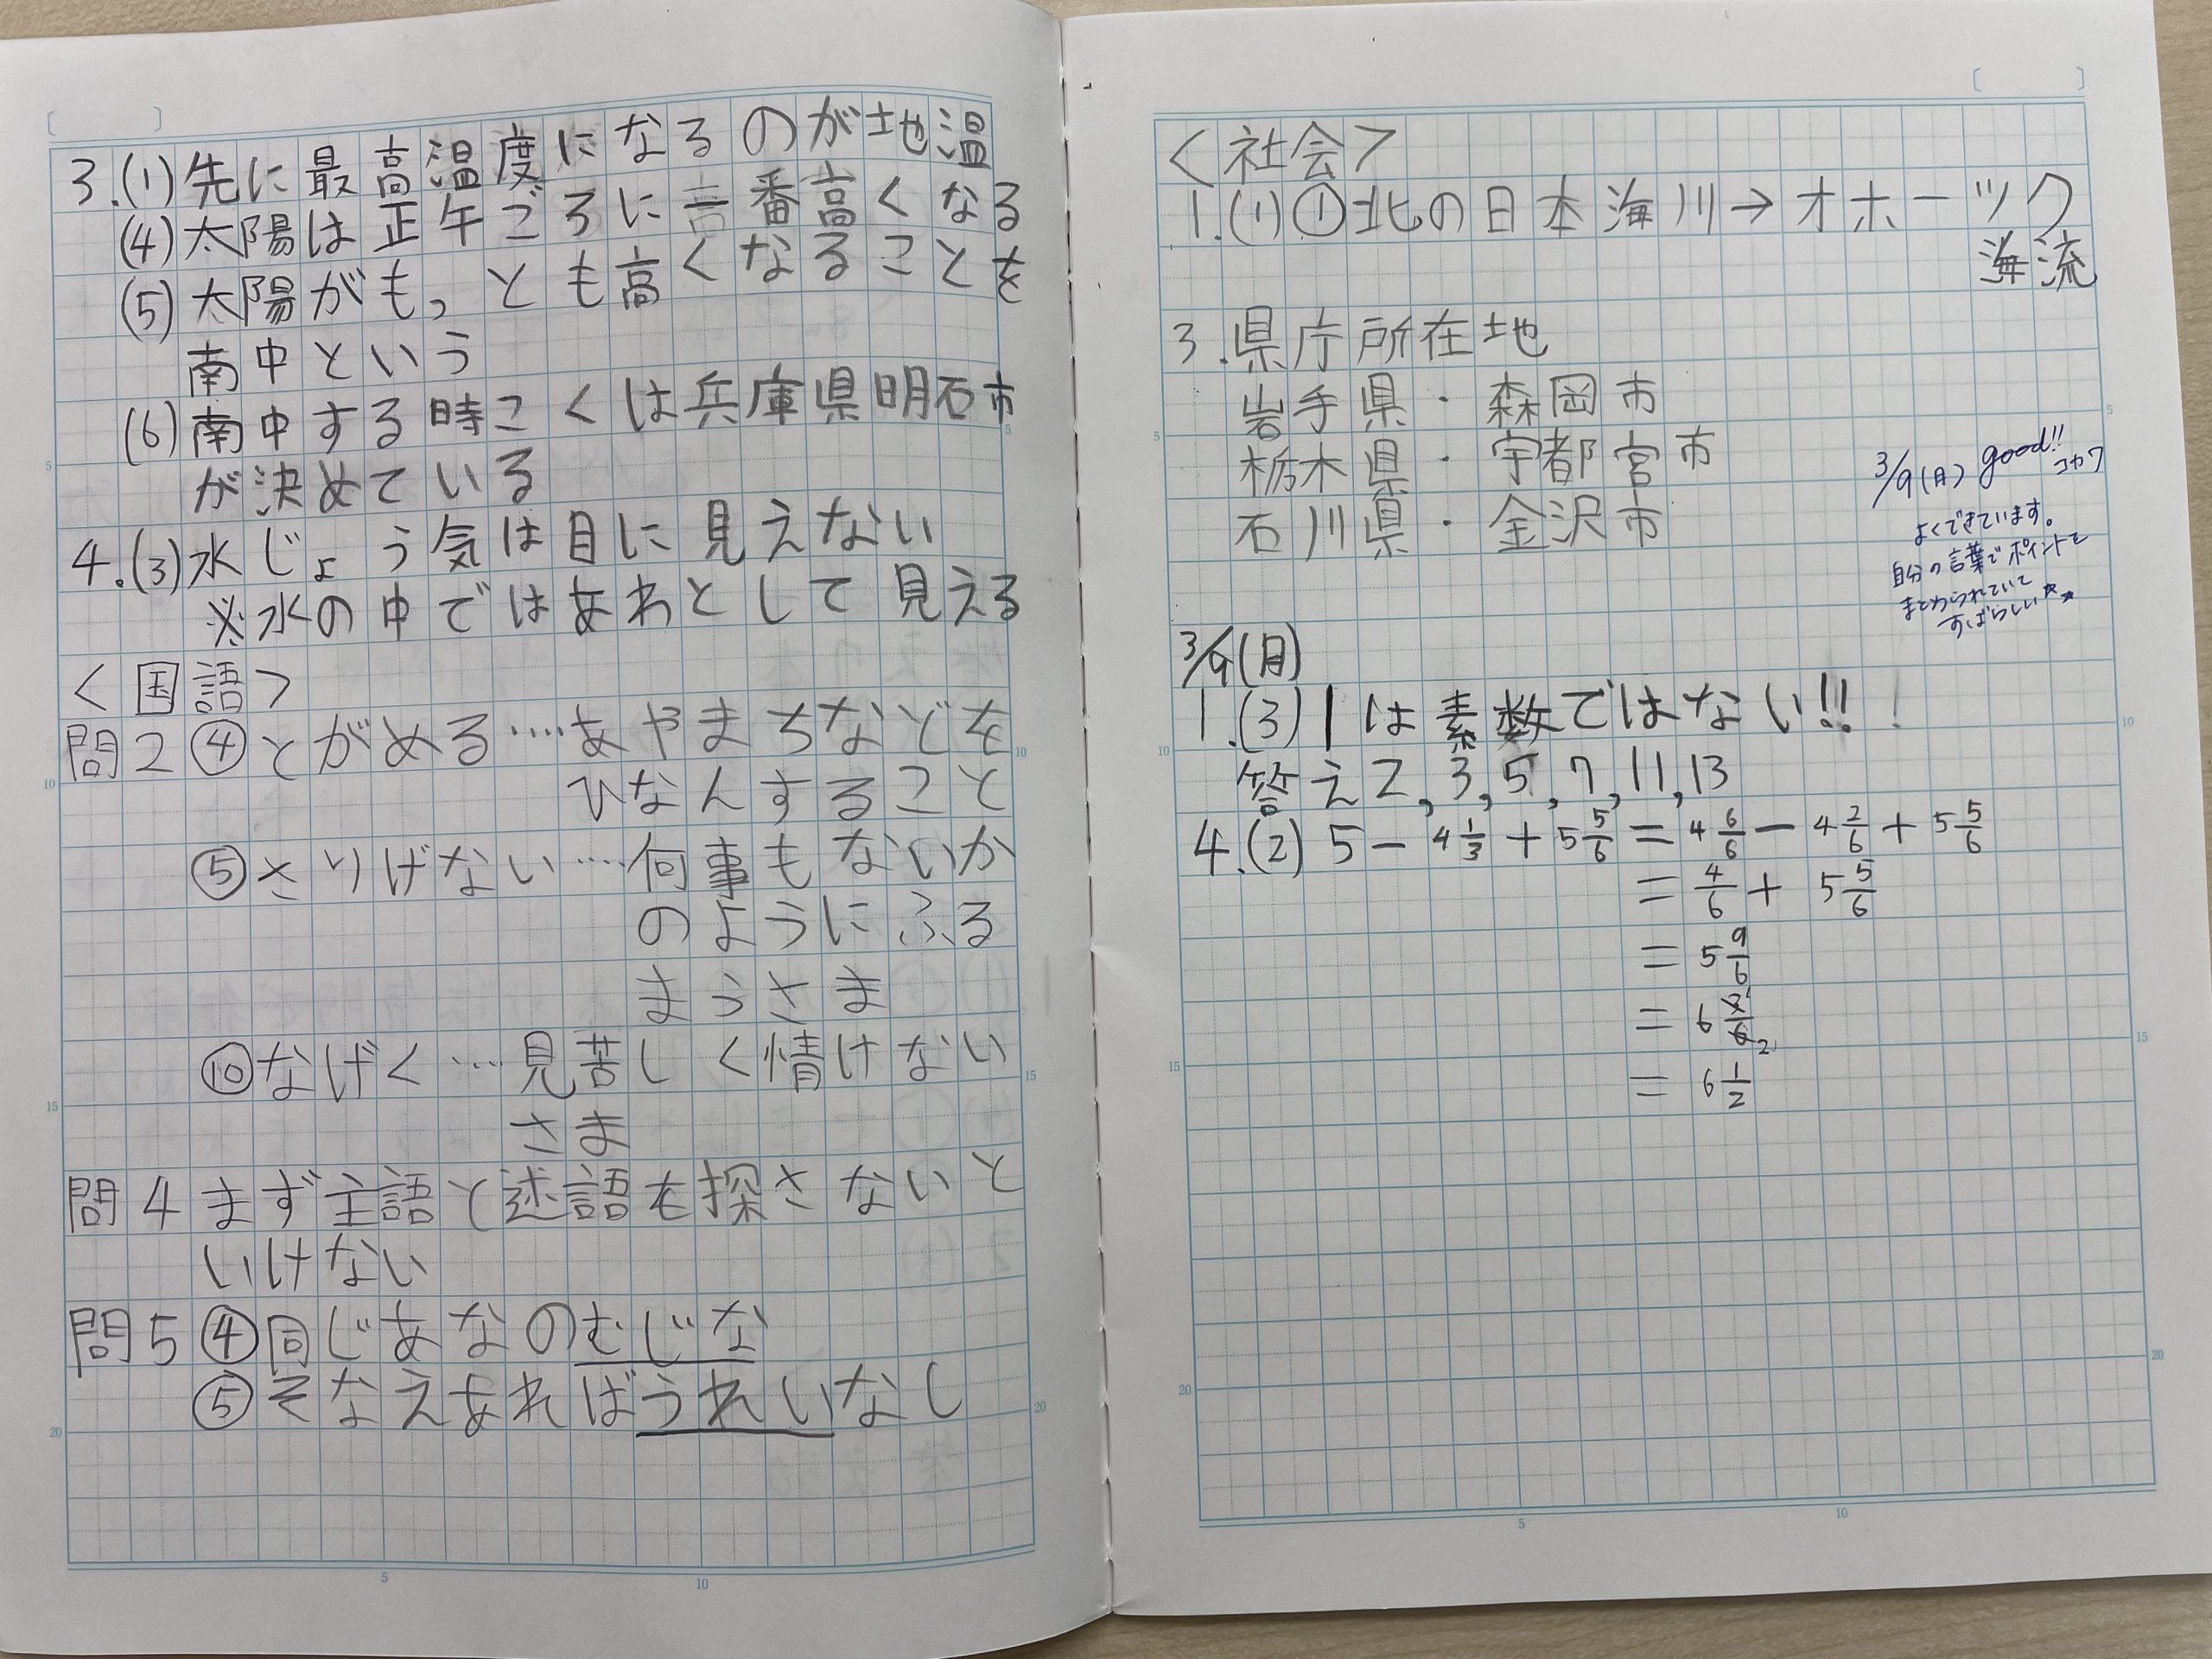 3.(1)先に最高温度になるのが地温
(4)太陽は正午ごろに一番高くなる
(5)太陽がもっとも高くなることを
南中という
(6)南中する時こくは兵庫県明石市
が決めている
4.(3)水じょう気は目に見えない
※水の中ではあわとして見える
<国語>
問2④とがめる…あやまちなどを
ひなんすること
⑤さりげない…何事もないか
のようにふる
まうさま
⑩なげく…見苦しく情けない
さま
問4まず主語と述語を探さないと
いけない
問5④同じあなのむじな
⑤そなえあればうれいなし
20
5
10
<社会>
1.(1)①北の日本海川→オホーツク
海流
3.県庁所在地
岩手県・森岡市
栃木県・宇都宮市
石川県・金沢市
3/9(月) good!!
よくできています。
自分の言葉でポイントを
まとめられていて
すばらしい☆★
3/9(月)
1.(3)1は素数ではない!!!
答え2,3,5,7,11,13
4.(2) 5-4 1/3+5 5/6=4 6/6-4 2/6+5 5/6
=4/6+5 5/6
=5 9/6
=6 3/6 1 2
=6 1/2
5
10
15
20